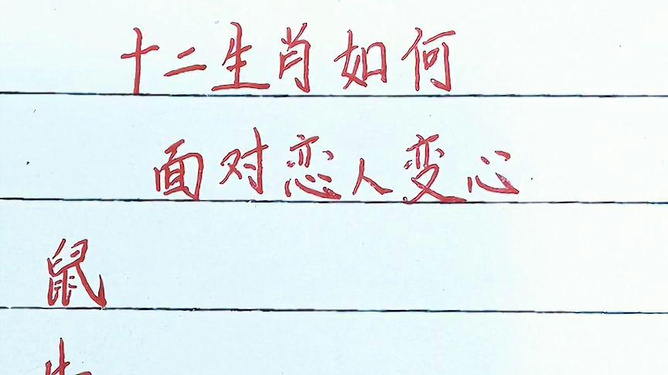 十二生肖如何
面对恋人变心
鼠